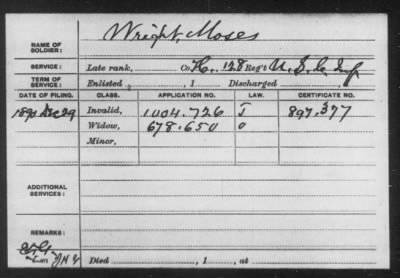 Wright, Moses
NAME OF SOLDIER:
SERVICE: Late rank, Co. H, 128 Reg't U.S.C. Inf
TERM OF SERVICE: Enlisted , 1 Discharged , 1
DATE OF FILING. CLASS. APPLICATION NO. LAW. CERTIFICATE NO.
1890 Dec 29 Invalid, 1004.726 J 897.377
Widow, 678.650 O
Minor,
ADDITIONAL SERVICES:
REMARKS:
Died , 1 , at